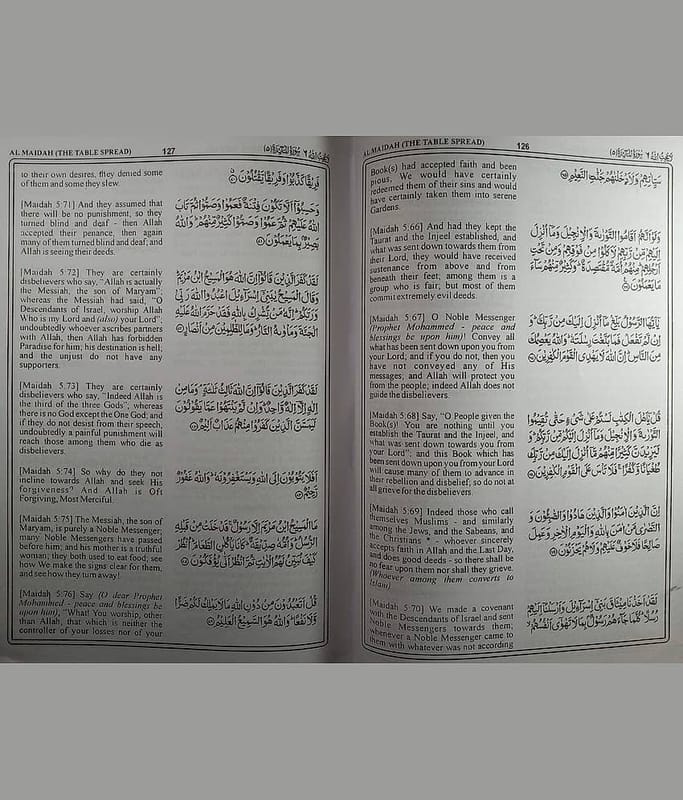 AL MAIDAH (THE TABLE SPREAD) 126 لا يحب الله ٦ سورة المائدة (٥)
Book(s) had accepted faith and been
pious, We would have certainly
redeemed them of their sins and would
have certainly taken them into serene
Gardens.
سَيِّاٰتِهِمْ وَلَاَدْخَلْنٰهُمْ جَنّٰتِ النَّعِيْمِ
[Maidah 5:66] And had they kept the
Taurat and the Injeel established, and
what was sent down towards them from
their Lord, they would have received
sustenance from above and from
beneath their feet; among them is a
group who is fair; but most of them
commit extremely evil deeds.
وَلَوْ اَنَّهُمْ اَقَامُوا التَّوْرٰىةَ وَالْاِنْجِيْلَ وَمَآ اُنْزِلَ
اِلَيْهِمْ مِّنْ رَّبِّهِمْ لَاَكَلُوْا مِنْ فَوْقِهِمْ وَمِنْ تَحْتِ
اَرْجُلِهِمْ مِنْهُمْ اُمَّةٌ مُّقْتَصِدَةٌ وَكَثِيْرٌ مِّنْهُمْ سَآءَ
مَا يَعْمَلُوْنَ
[Maidah 5:67] O Noble Messenger
(Prophet Mohammed - peace and
blessings be upon him) Convey all
what has been sent down upon you from
your Lord; and if you do not, then you
have not conveyed any of His
messages; and Allah will protect you
from the people; indeed Allah does not
guide the disbelievers.
يٰٓاَيُّهَا الرَّسُوْلُ بَلِّغْ مَآ اُنْزِلَ اِلَيْكَ مِنْ رَّبِّكَ وَ
اِنْ لَّمْ تَفْعَلْ فَمَا بَلَّغْتَ رِسٰلَتَهٗ وَاللّٰهُ يَعْصِمُكَ
مِنَ النَّاسِ اِنَّ اللّٰهَ لَا يَهْدِى الْقَوْمَ الْكٰفِرِيْنَ
[Maidah 5:68] Say, “O People given the
Book(s)! You are nothing until you
establish the Taurat and the Injeel, and
what was sent down towards you from
your Lord”; and this Book which has
been sent down upon you from your Lord
will cause many of them to advance in
their rebellion and disbelief; so do not at
all grieve for the disbelievers.
قُلْ يٰٓاَهْلَ الْكِتٰبِ لَسْتُمْ عَلٰى شَىْءٍ حَتّٰى تُقِيْمُوا
التَّوْرٰىةَ وَالْاِنْجِيْلَ وَمَآ اُنْزِلَ اِلَيْكُمْ مِّنْ رَّبِّكُمْ وَ
لَيَزِيْدَنَّ كَثِيْرًا مِّنْهُمْ مَّآ اُنْزِلَ اِلَيْكَ مِنْ رَّبِّكَ
طُغْيَانًا وَّكُفْرًا فَلَا تَاْسَ عَلَى الْقَوْمِ الْكٰفِرِيْنَ
[Maidah 5:69] Indeed those who call
themselves Muslims - and similarly
among the Jews, and the Sabeans, and
the Christians * - whoever sincerely
accepts faith in Allah and the Last Day,
and does good deeds - so there shall be
no fear upon them nor shall they grieve.
(Whoever among them converts to
Islam)
اِنَّ الَّذِيْنَ اٰمَنُوْا وَالَّذِيْنَ هَادُوْا وَالصّٰبِـُٔوْنَ وَ
النَّصٰرٰى مَنْ اٰمَنَ بِاللّٰهِ وَالْيَوْمِ الْاٰخِرِ وَعَمِلَ
صَالِحًا فَلَا خَوْفٌ عَلَيْهِمْ وَلَا هُمْ يَحْزَنُوْنَ
[Maidah 5:70] We made a covenant
with the Descendants of Israel and sent
Noble Messengers towards them;
whenever a Noble Messenger came to
them with whatever was not according
لَقَدْ اَخَذْنَا مِيْثَاقَ بَنِىْٓ اِسْرَآءِيْلَ وَاَرْسَلْنَآ اِلَيْهِمْ
رُسُلًا كُلَّمَا جَآءَهُمْ رَسُوْلٌ بِمَا لَا تَهْوٰٓى اَنْفُسُهُمْ
AL MAIDAH (THE TABLE SPREAD) 127 لا يحب الله ٦ سورة المائدة (٥)
to their own desires, they denied some
of them and some they slew.
فَرِيْقًا كَذَّبُوْا وَفَرِيْقًا يَّقْتُلُوْنَ
[Maidah 5:71] And they assumed that
there will be no punishment, so they
turned blind and deaf - then Allah
accepted their penance, then again
many of them turned blind and deaf; and
Allah is seeing their deeds.
وَحَسِبُوْٓا اَلَّا تَكُوْنَ فِتْنَةٌ فَعَمُوْا وَصَمُّوْا ثُمَّ تَابَ
اللّٰهُ عَلَيْهِمْ ثُمَّ عَمُوْا وَصَمُّوْا كَثِيْرٌ مِّنْهُمْ وَاللّٰهُ
بَصِيْرٌۢ بِمَا يَعْمَلُوْنَ
[Maidah 5:72] They are certainly
disbelievers who say, “Allah is actually
the Messiah, the son of Maryam”;
whereas the Messiah had said, “O
Descendants of Israel, worship Allah
Who is my Lord and (also) your Lord”;
undoubtedly whoever ascribes partners
with Allah, then Allah has forbidden
Paradise for him; his destination is hell;
and the unjust do not have any
supporters.
لَقَدْ كَفَرَ الَّذِيْنَ قَالُوْٓا اِنَّ اللّٰهَ هُوَ الْمَسِيْحُ ابْنُ مَرْيَمَ
وَقَالَ الْمَسِيْحُ يٰبَنِىْٓ اِسْرَآءِيْلَ اعْبُدُوا اللّٰهَ رَبِّىْ
وَرَبَّكُمْ اِنَّهٗ مَنْ يُّشْرِكْ بِاللّٰهِ فَقَدْ حَرَّمَ اللّٰهُ عَلَيْهِ
الْجَنَّةَ وَمَاْوٰىهُ النَّارُ وَمَا لِلظّٰلِمِيْنَ مِنْ اَنْصَارٍ
[Maidah 5:73] They are certainly
disbelievers who say, “Indeed Allah is
the third of the three Gods”; whereas
there is no God except the One God; and
if they do not desist from their speech,
undoubtedly a painful punishment will
reach those among them who die as
disbelievers.
لَقَدْ كَفَرَ الَّذِيْنَ قَالُوْٓا اِنَّ اللّٰهَ ثَالِثُ ثَلٰثَةٍ وَمَا مِنْ
اِلٰهٍ اِلَّآ اِلٰهٌ وَّاحِدٌ وَاِنْ لَّمْ يَنْتَهُوْا عَمَّا يَقُوْلُوْنَ
لَيَمَسَّنَّ الَّذِيْنَ كَفَرُوْا مِنْهُمْ عَذَابٌ اَلِيْمٌ
[Maidah 5:74] So why do they not
incline towards Allah and seek His
forgiveness? And Allah is Oft
Forgiving, Most Merciful.
اَفَلَا يَتُوْبُوْنَ اِلَى اللّٰهِ وَيَسْتَغْفِرُوْنَهٗ وَاللّٰهُ غَفُوْرٌ
رَّحِيْمٌ
[Maidah 5:75] The Messiah, the son of
Maryam, is purely a Noble Messenger;
many Noble Messengers have passed
before him; and his mother is a truthful
woman; they both used to eat food; see
how We make the signs clear for them,
and see how they turn away!
مَا الْمَسِيْحُ ابْنُ مَرْيَمَ اِلَّا رَسُوْلٌ قَدْ خَلَتْ مِنْ قَبْلِهِ
الرُّسُلُ وَاُمُّهٗ صِدِّيْقَةٌ كَانَا يَاْكُلٰنِ الطَّعَامَ اُنْظُرْ
كَيْفَ نُبَيِّنُ لَهُمُ الْاٰيٰتِ ثُمَّ انْظُرْ اَنّٰى يُؤْفَكُوْنَ
[Maidah 5:76] Say (O dear Prophet
Mohammed - peace and blessings be
upon him), “What! You worship, other
than Allah, that which is neither the
controller of your losses nor of your
قُلْ اَتَعْبُدُوْنَ مِنْ دُوْنِ اللّٰهِ مَا لَا يَمْلِكُ لَكُمْ ضَرًّا
وَّلَا نَفْعًا وَاللّٰهُ هُوَ السَّمِيْعُ الْعَلِيْمُ